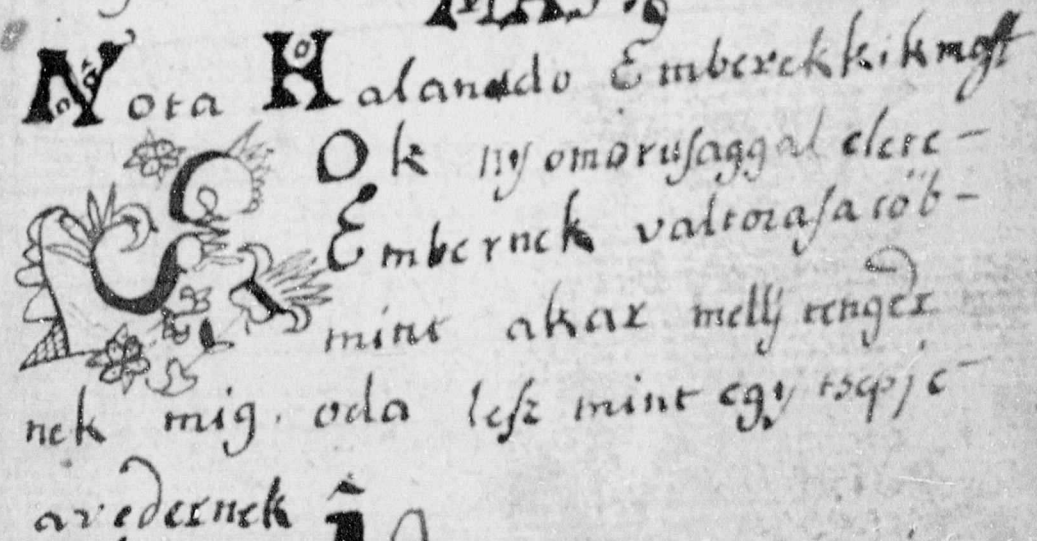 MAS.
Nota Halando Emberek kik most
SOk nyomorusaggal elete -
Embernek valtozasa több -
mint akar melly tenger
nek mig oda lesz mint egy tsepje -
a vedernek